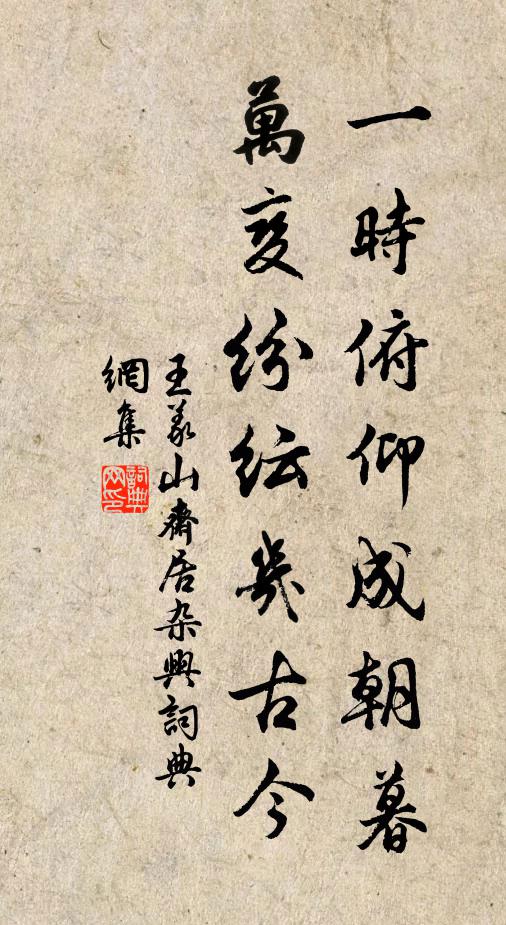 一時俯仰成朝暮
萬变紛紜幾古今
王義山齋居杂興詞典
網集
詞典
网印